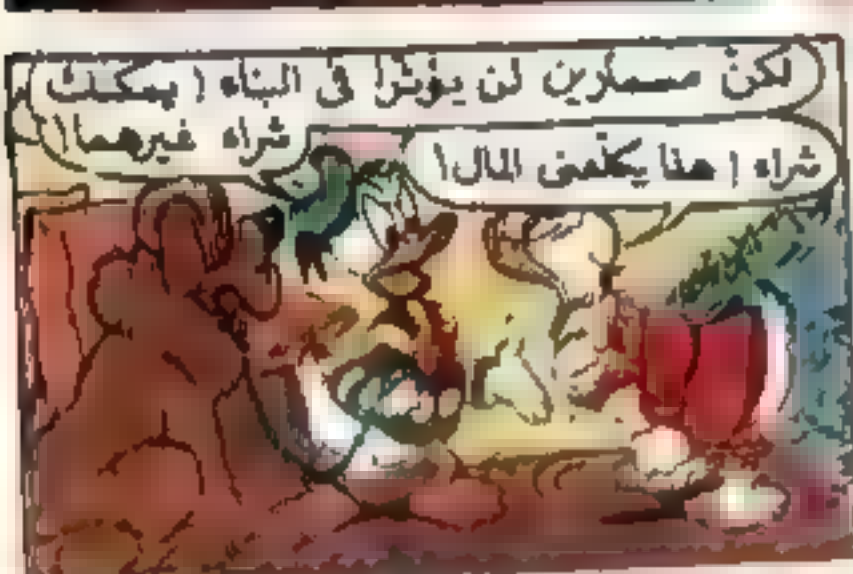 لكنّ مسمارين لن يؤثرا في البناء ! يمكنك
شراء غيرهما !
شراء ! هذا يكلّفني المال !